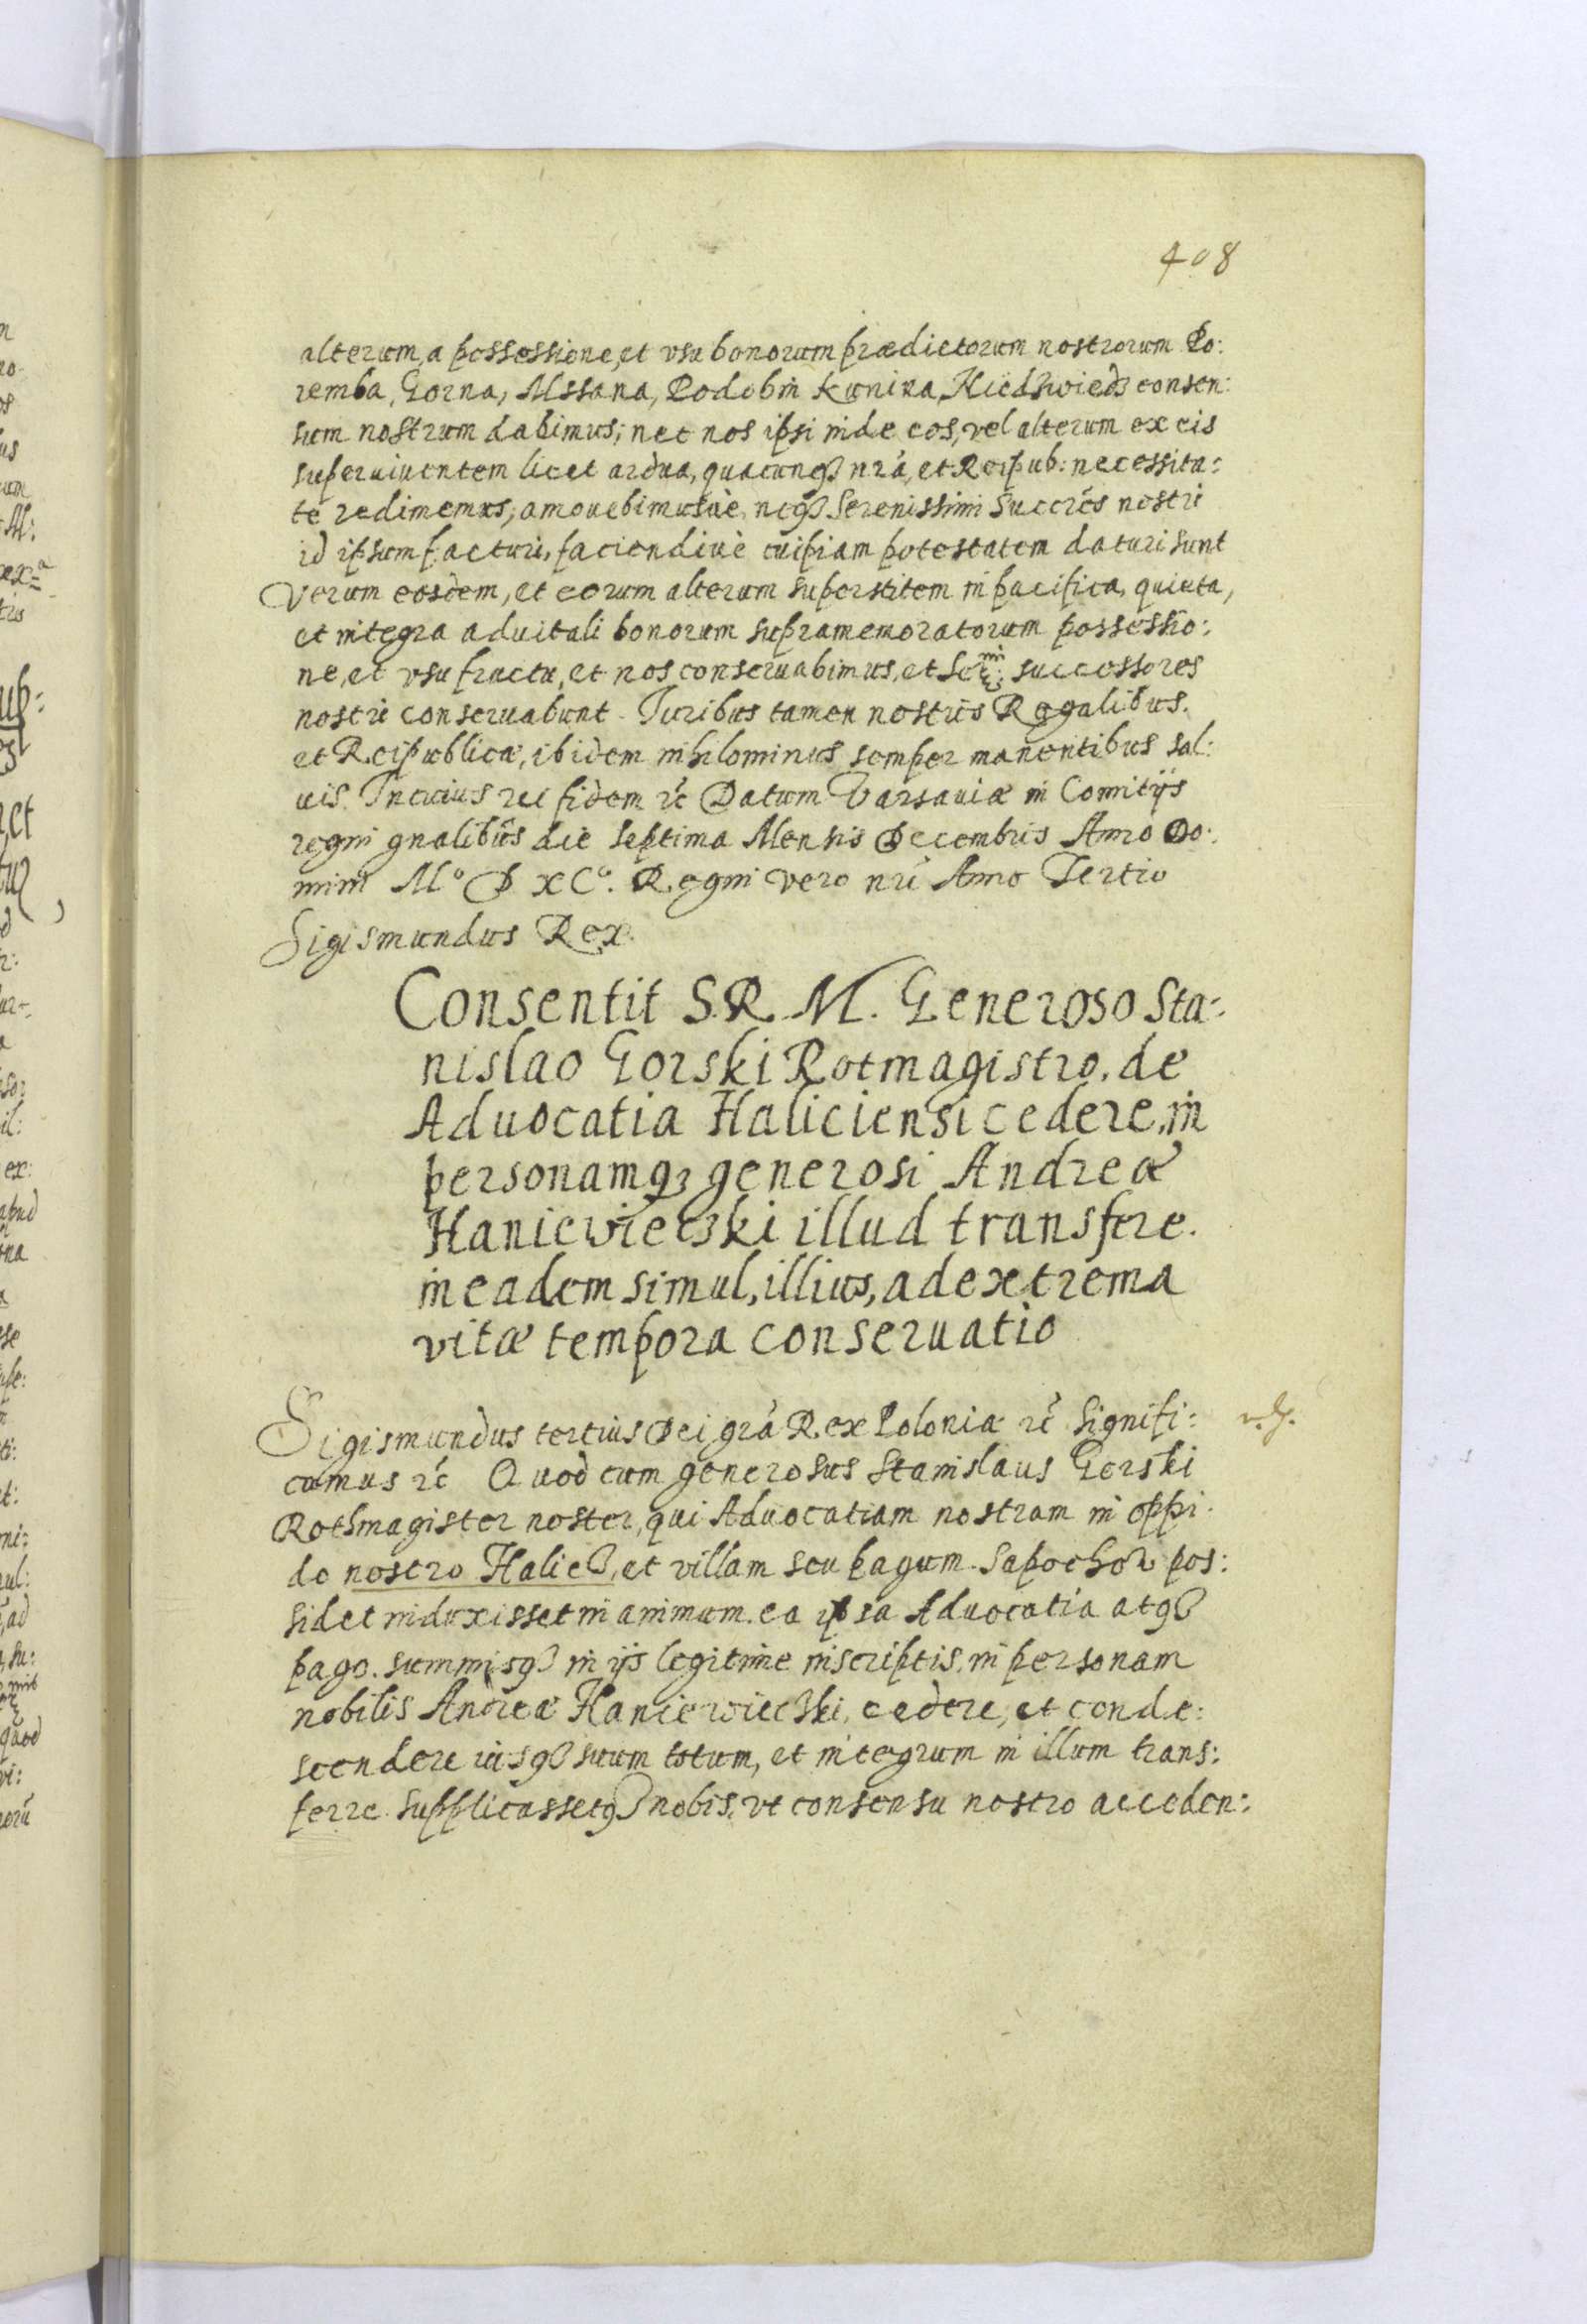 408
alterum, a possessione, et vsu bonorum prædictorum nostrorum Po:
remba, Gorna, Mssana, Podobin Kunina, Niedzwiedz consen:
sum nostrum dabimus; nec nos ipsi inde eos, vel alterum ex eis
superuiuentem licet ardua, quacunq3 nrã, et Reipub: necessita:
te redimemus, amouebimusuè, neq3 Serenissimi Succrẽs nostri
id ipsum facturi, faciendiuè cuipiam potestatem daturi sunt
Verum eosdem, et eorum alterum superstitem in pacifica, quieta,
et integra aduitali bonorum supramemoratorum possessio:
ne, et vsu fructu, et nos conseruabimus, et Ser mi successores
nostri conseruabunt. Iuribus tamen nostris Regalibus.
et Reipublicæ, ibidem nihilominus semper manentibus sal:
uis. In cuius rei fidem rc̃ Datum Varsauiæ in Comitijs
regni gnalibus die Septima Mensis Decembris Anno Do:
mini Mº D XCº. Regni vero nri Anno Tertio
Sigismundus Rex.
Consentit S.R.M. Generoso Sta:
nislao Gorski Rotmagistro, de
Aduocatia Haliciensi cedere, in
personamq3 generosi Andreæ
Haniewieczki illud transfere.
in eadem simul, illius, ad extrema
vitæ tempora conseruatio
Sigismundus tertius Dei grã Rex Poloniæ rc̃ Signifi:
camus rc̃ Quod cum generosus Stanislaus Gorski
Rothmagister noster, qui Aduocatiam nostram in oppi:
do nostro Halicz, et villam seu pagum Sapochow pos:
sidet induxisset in animum. ea ipsa Aduocatia atq3
pago. summisq3 in ijs legitime inscriptis, in personam
nobilis Andreæ Haniewieczki, cedere, et conde:
scendere iusq3 suum totum, et integrum in illum trans:
ferre. Supplicassetq3 nobis, vt consensu nostro acceden: